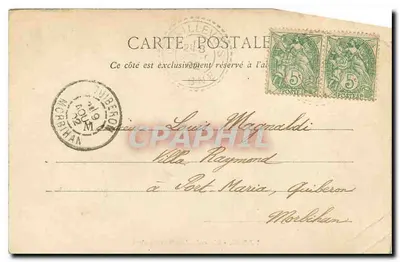 CARTE POSTALE
Ce côté est exclusivement réservé à l'a
5c 5c
QUIBERON
MORBIHAN
Louis Magnaldi
Villa Raymond
à Port-Maria, Quiberon
Morbihan
CPAPHIL